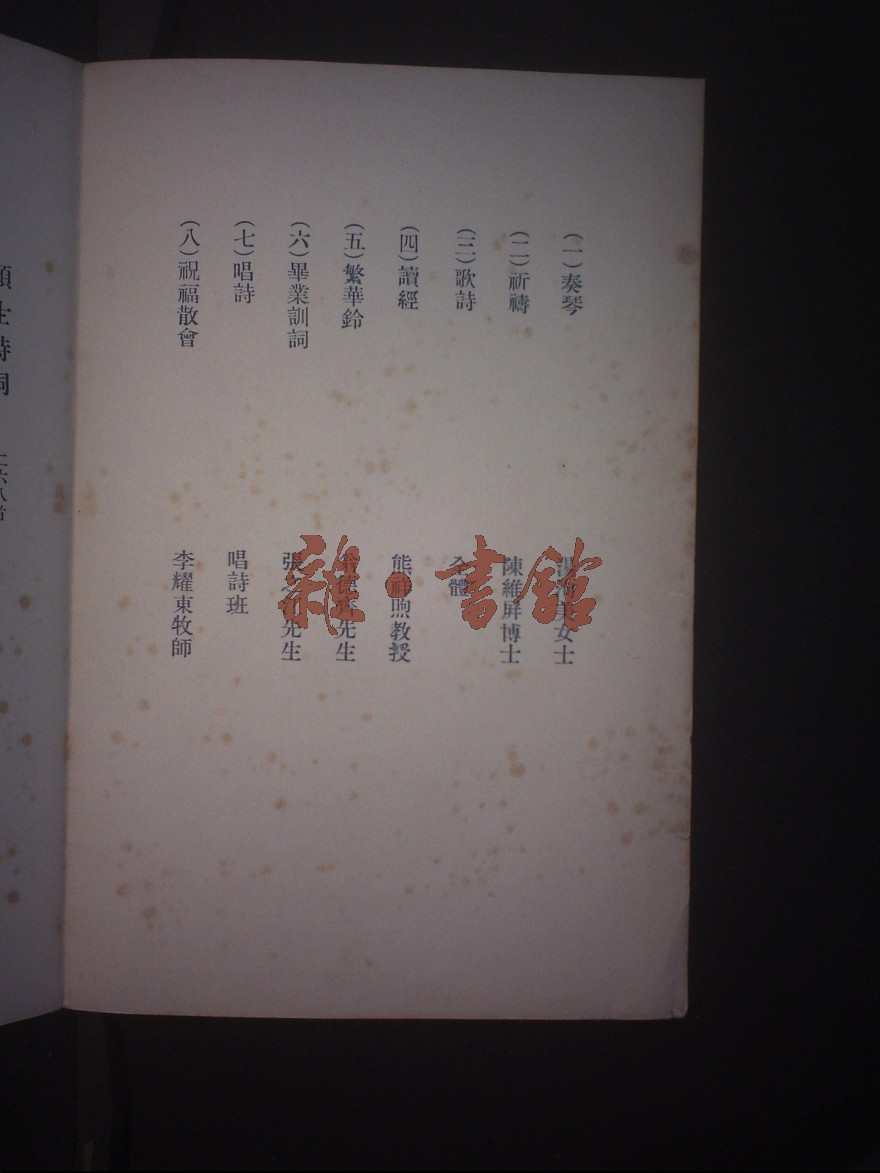 (一)奏琴 女士
(二)祈禱 陳維屏博士
(三)歌詩 全體
(四)讀經 熊祥煦教授
(五)繁華鈴 先生
(六)畢業訓詞 張之江先生
(七)唱詩 唱詩班
(八)祝福散會 李耀東牧師
雜·書館